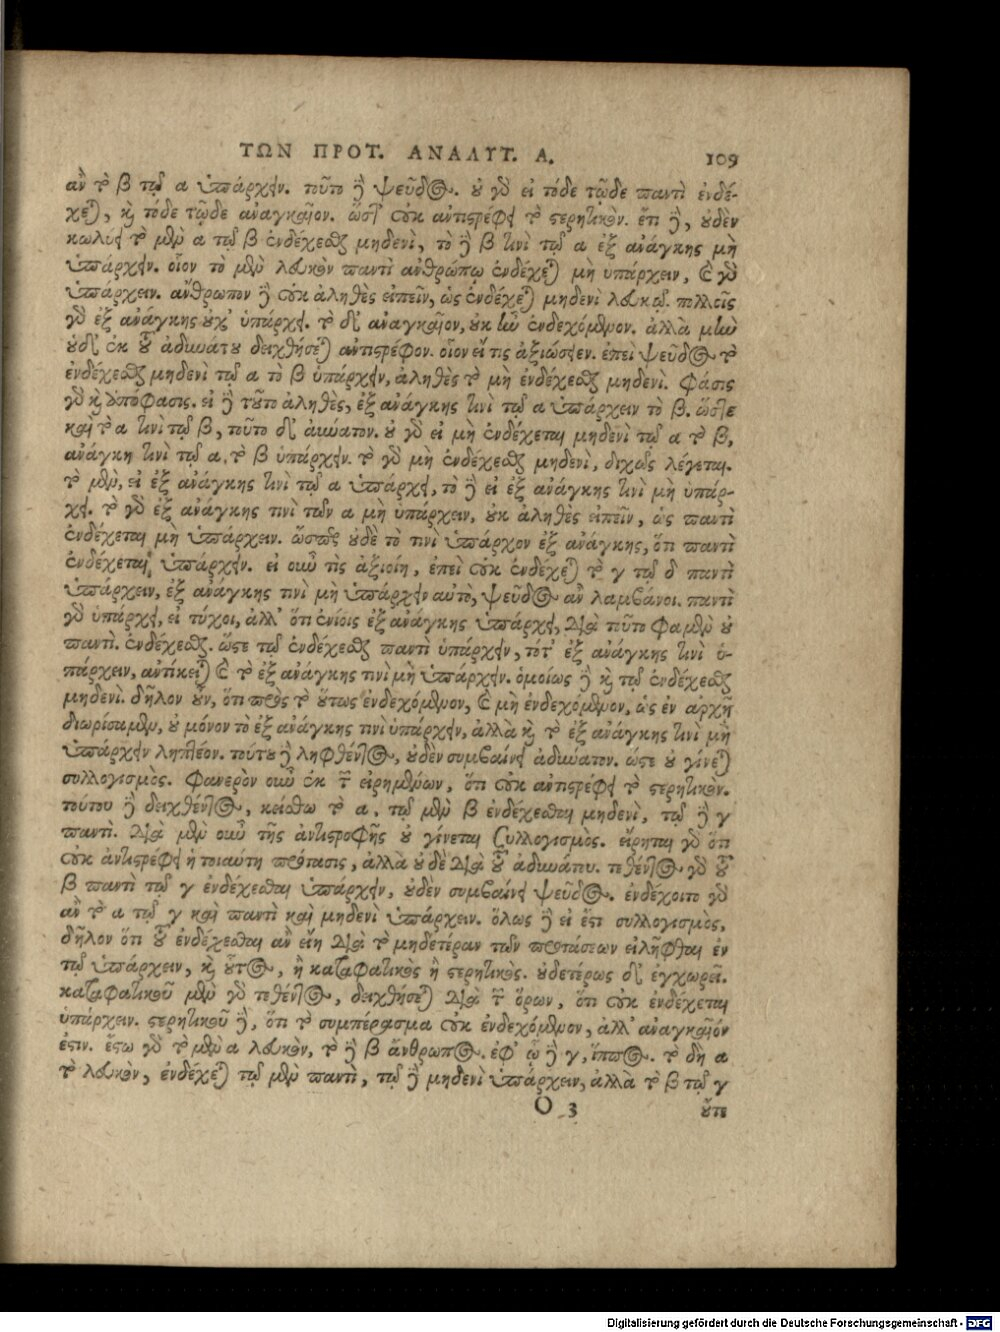 ΤΩΝ ΠΡΟΤ. ΑΝΑΛΥΤ. Α. 109
ἂν τὸ β τῷ α ὑπάρχειν. τοῦτο δὲ ψεῦδος. οὐ γὰρ εἰ τόδε τῷδε παντὶ ἐνδέ-
χεται, καὶ τόδε τῷδε ἀναγκαῖον. ὥστ' οὐκ ἀντιστρέφει τὸ στερητικόν. ἔτι δὲ, οὐδὲν
κωλύει τὸ μὲν α τῷ β ἐνδέχεσθαι μηδενὶ, τὸ δὲ β τινὶ τῷ α ἐξ ἀνάγκης μὴ
ὑπάρχειν. οἷον τὸ μὲν λευκὸν παντὶ ἀνθρώπῳ ἐνδέχεται μὴ ὑπάρχειν, καὶ γὰρ
ὑπάρχειν. ἄνθρωπον δὲ οὐκ ἀληθὲς εἰπεῖν, ὡς ἐνδέχεται μηδενὶ λευκῷ. πολλοῖς
γὰρ ἐξ ἀνάγκης οὐχ' ὑπάρχει. τὸ δ' ἀναγκαῖον, οὐκ ἦν ἐνδεχόμενον. ἀλλὰ μὴν
οὐδ' ἐκ τοῦ ἀδυνάτου δειχθήσεται ἀντιστρέφον. οἷον εἴ τις ἀξιώσειεν. ἐπεὶ ψεῦδος τὸ
ἐνδέχεσθαι μηδενὶ τῷ α τὸ β ὑπάρχειν, ἀληθὲς τὸ μὴ ἐνδέχεσθαι μηδενί. φάσις
γὰρ καὶ ἀπόφασις. εἰ δὲ τοῦτο ἀληθὲς, ἐξ ἀνάγκης τινὶ τῷ α ὑπάρχειν τὸ β. ὥστε
καὶ τὸ α τινὶ τῷ β, τοῦτο δ' ἀδύνατον. οὐ γὰρ εἰ μὴ ἐνδέχεται μηδενὶ τῷ α τὸ β,
ἀνάγκη τινὶ τῷ α, τὸ β ὑπάρχειν. τὸ γὰρ μὴ ἐνδέχεσθαι μηδενὶ, διχῶς λέγεται.
τὸ μὲν, εἰ ἐξ ἀνάγκης τινὶ τῷ α ὑπάρχει, τὸ δὲ εἰ ἐξ ἀνάγκης τινὶ μὴ ὑπάρ-
χει. τὸ γὰρ ἐξ ἀνάγκης τινὶ τῶν α μὴ ὑπάρχειν, οὐκ ἀληθὲς εἰπεῖν, ὡς παντὶ
ἐνδέχεται μὴ ὑπάρχειν. ὥσπερ οὐδὲ τὸ τινὶ ὑπάρχον ἐξ ἀνάγκης, ὅτι παντὶ
ἐνδέχεται ὑπάρχειν. εἰ οὖν τὶς ἀξιοίη, ἐπεὶ οὐκ ἐνδέχεται τὸ γ τῷ δ παντὶ
ὑπάρχειν, ἐξ ἀνάγκης τινὶ μὴ ὑπάρχειν αὐτὸ, ψεῦδος ἂν λαμβάνοι. παντὶ
γὰρ ὑπάρχει, εἰ τύχοι, ἀλλ' ὅτι ἐνίοις ἐξ ἀνάγκης ὑπάρχει, διὰ τοῦτο φαμὲν οὐ
παντὶ. ἐνδέχεσθαι. ὥστε τῷ ἐνδέχεσθαι παντὶ ὑπάρχειν, τότ' ἐξ ἀνάγκης τινὶ ὑ-
πάρχειν, ἀντίκειται καὶ τὸ ἐξ ἀνάγκης τινὶ μὴ ὑπάρχειν. ὁμοίως δὲ καὶ τῷ ἐνδέχεσθαι
μηδενί. δῆλον οὖν, ὅτι πρὸς τὸ οὕτως ἐνδεχόμενον, καὶ μὴ ἐνδεχόμενον, ὡς ἐν ἀρχῇ
διωρίσαμεν, οὐ μόνον τὸ ἐξ ἀνάγκης τινὶ ὑπάρχειν, ἀλλὰ καὶ τὸ ἐξ ἀνάγκης τινὶ μὴ
ὑπάρχειν ληπτέον. τούτου δὲ ληφθέντος, οὐδὲν συμβαίνει ἀδύνατον. ὥστε οὐ γίνεται
συλλογισμὸς. Φανερὸν οὖν ἐκ τῶν εἰρημένων, ὅτι οὐκ ἀντιστρέφει τὸ στερητικὸν.
τούτου δὲ δειχθέντος, κείσθω τὸ α, τῷ μὲν β ἐνδέχεσθαι μηδενὶ, τῷ δὲ γ
παντί. διὰ μὲν οὖν τῆς ἀντιστροφῆς οὐ γίνεται συλλογισμός. εἴρηται γὰρ ὅτι
οὐκ ἀντιστρέφει ἡ τοιαύτη πρότασις, ἀλλὰ οὐδὲ διὰ τοῦ ἀδυνάτου. τεθέντος γὰρ τοῦ
β παντὶ τῷ γ ἐνδέχεσθαι ὑπάρχειν, οὐδὲν συμβαίνει ψεῦδος. ἐνδέχοιτο γὰρ
ἂν τὸ α τῷ γ καὶ παντὶ καὶ μηδενὶ ὑπάρχειν. ὅλως δὲ εἰ ἔστι συλλογισμὸς,
δῆλον ὅτι τοῦ ἐνδέχεσθαι ἂν εἴη διὰ τὸ μηδετέραν τῶν προτάσεων εἰλῆφθαι ἐν
τῷ ὑπάρχειν, καὶ οὗτος, ἢ καταφατικὸς ἢ στερητικός. οὐδετέρως δ' ἐγχωρεῖ.
καταφατικοῦ μὲν γὰρ τεθέντος, δειχθήσεται διὰ τῶν ὅρων, ὅτι οὐκ ἐνδέχεται
ὑπάρχειν. στερητικοῦ δὲ, ὅτι τὸ συμπέρασμα οὐκ ἐνδεχόμενον, ἀλλ' ἀναγκαῖόν
ἐστιν. ἔστω γὰρ τὸ μὲν α λευκὸν, τὸ δὲ β ἄνθρωπος. ἐφ' ᾧ δὲ γ, ἵππος. τὸ δὴ α
τὸ λευκὸν, ἐνδέχεται τῷ μὲν παντὶ, τῷ δὲ μηδενὶ ὑπάρχειν, ἀλλὰ τὸ β τῷ γ
O 3 οὔτε
Digitalisierung gefördert durch die Deutsche Forschungsgemeinschaft - DFG